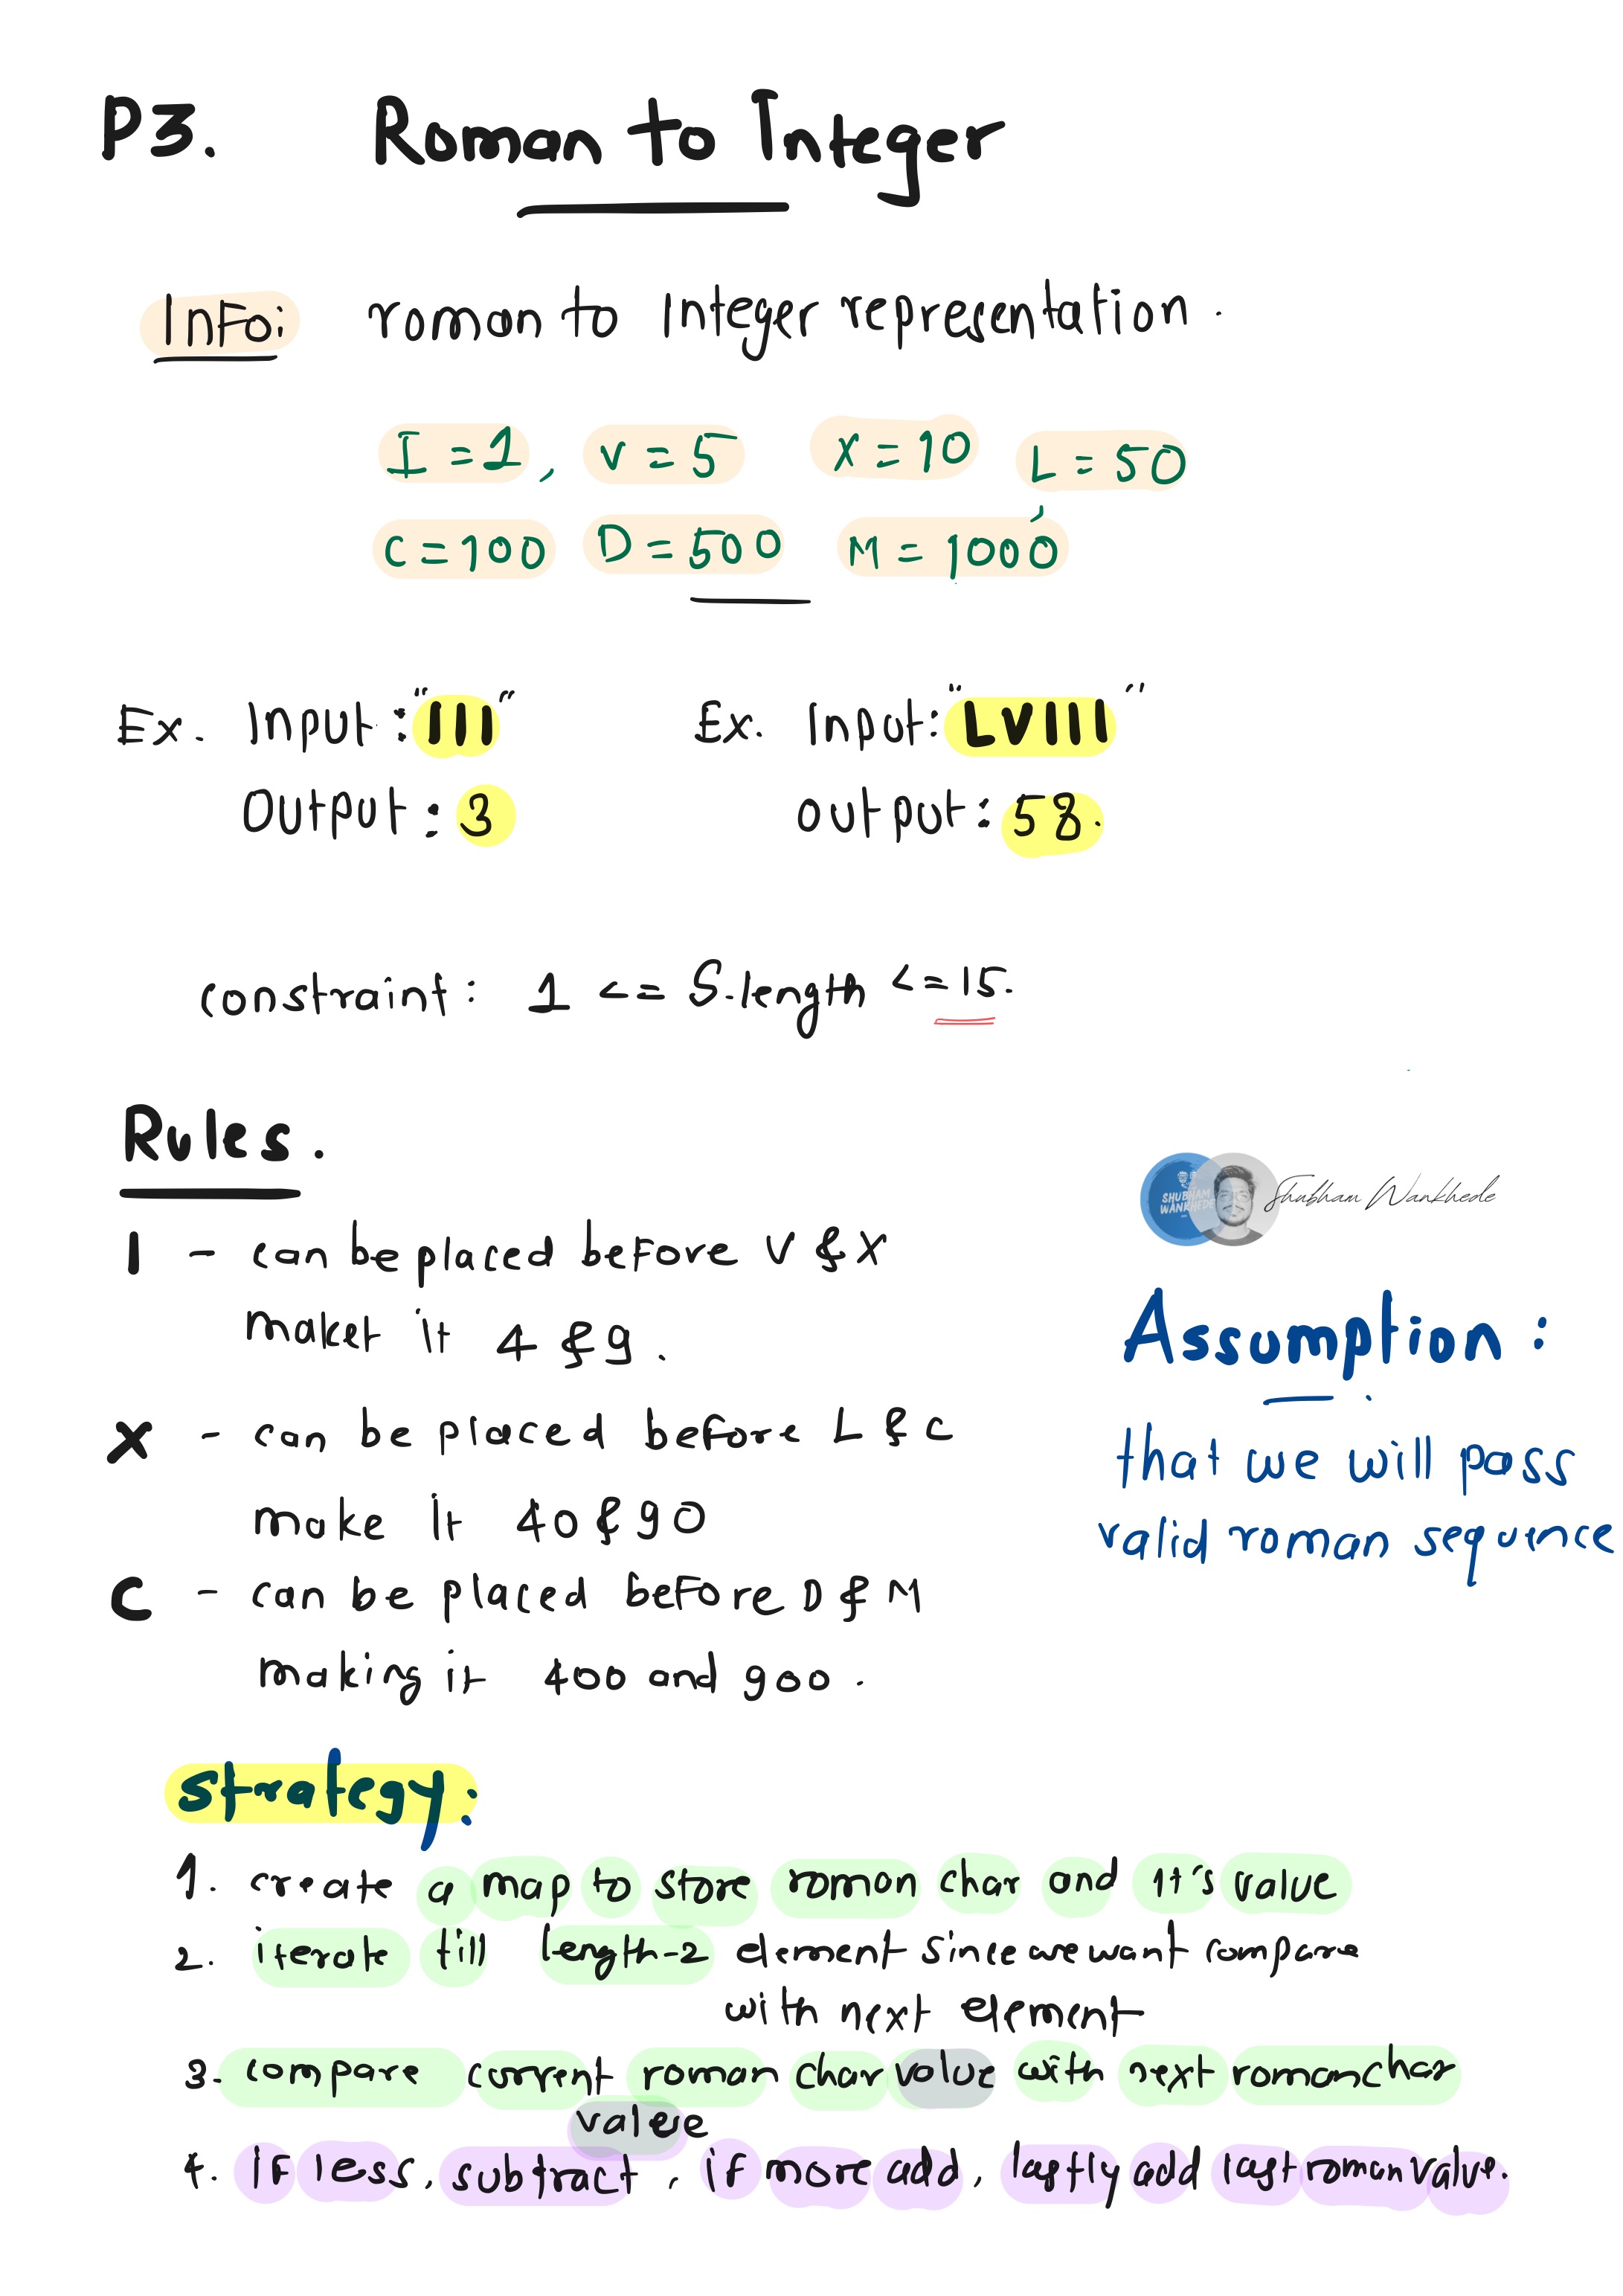 P3. Roman to Integer
InFo: roman to Integer representation.
I = 1, V = 5 X = 10 L = 50,
C = 100 D = 500 M = 1000
Ex. Input : "III" Ex. Inpot: "LVIII"
Output : 3 output: 58.
constraint: 1 <= S.length <= 15.
Rules.
I - can be placed before V & X
maket it 4 & 9.
X - can be placed before L & C
make it 40 & 90
C - can be placed beFore D & M
making it 400 and 900.
SHUBHAM
WANKHEDE
Shubham Wankhede
Assumption:
that we will pass
valid roman sequence
Strategy:
1. create a map to store roman char and it's value
2. iterate till length-2 element since we want compare
with next element
3. compare current roman char value with next roman char
value
4. IF less, subtract, if more add, lastly add last roman value.